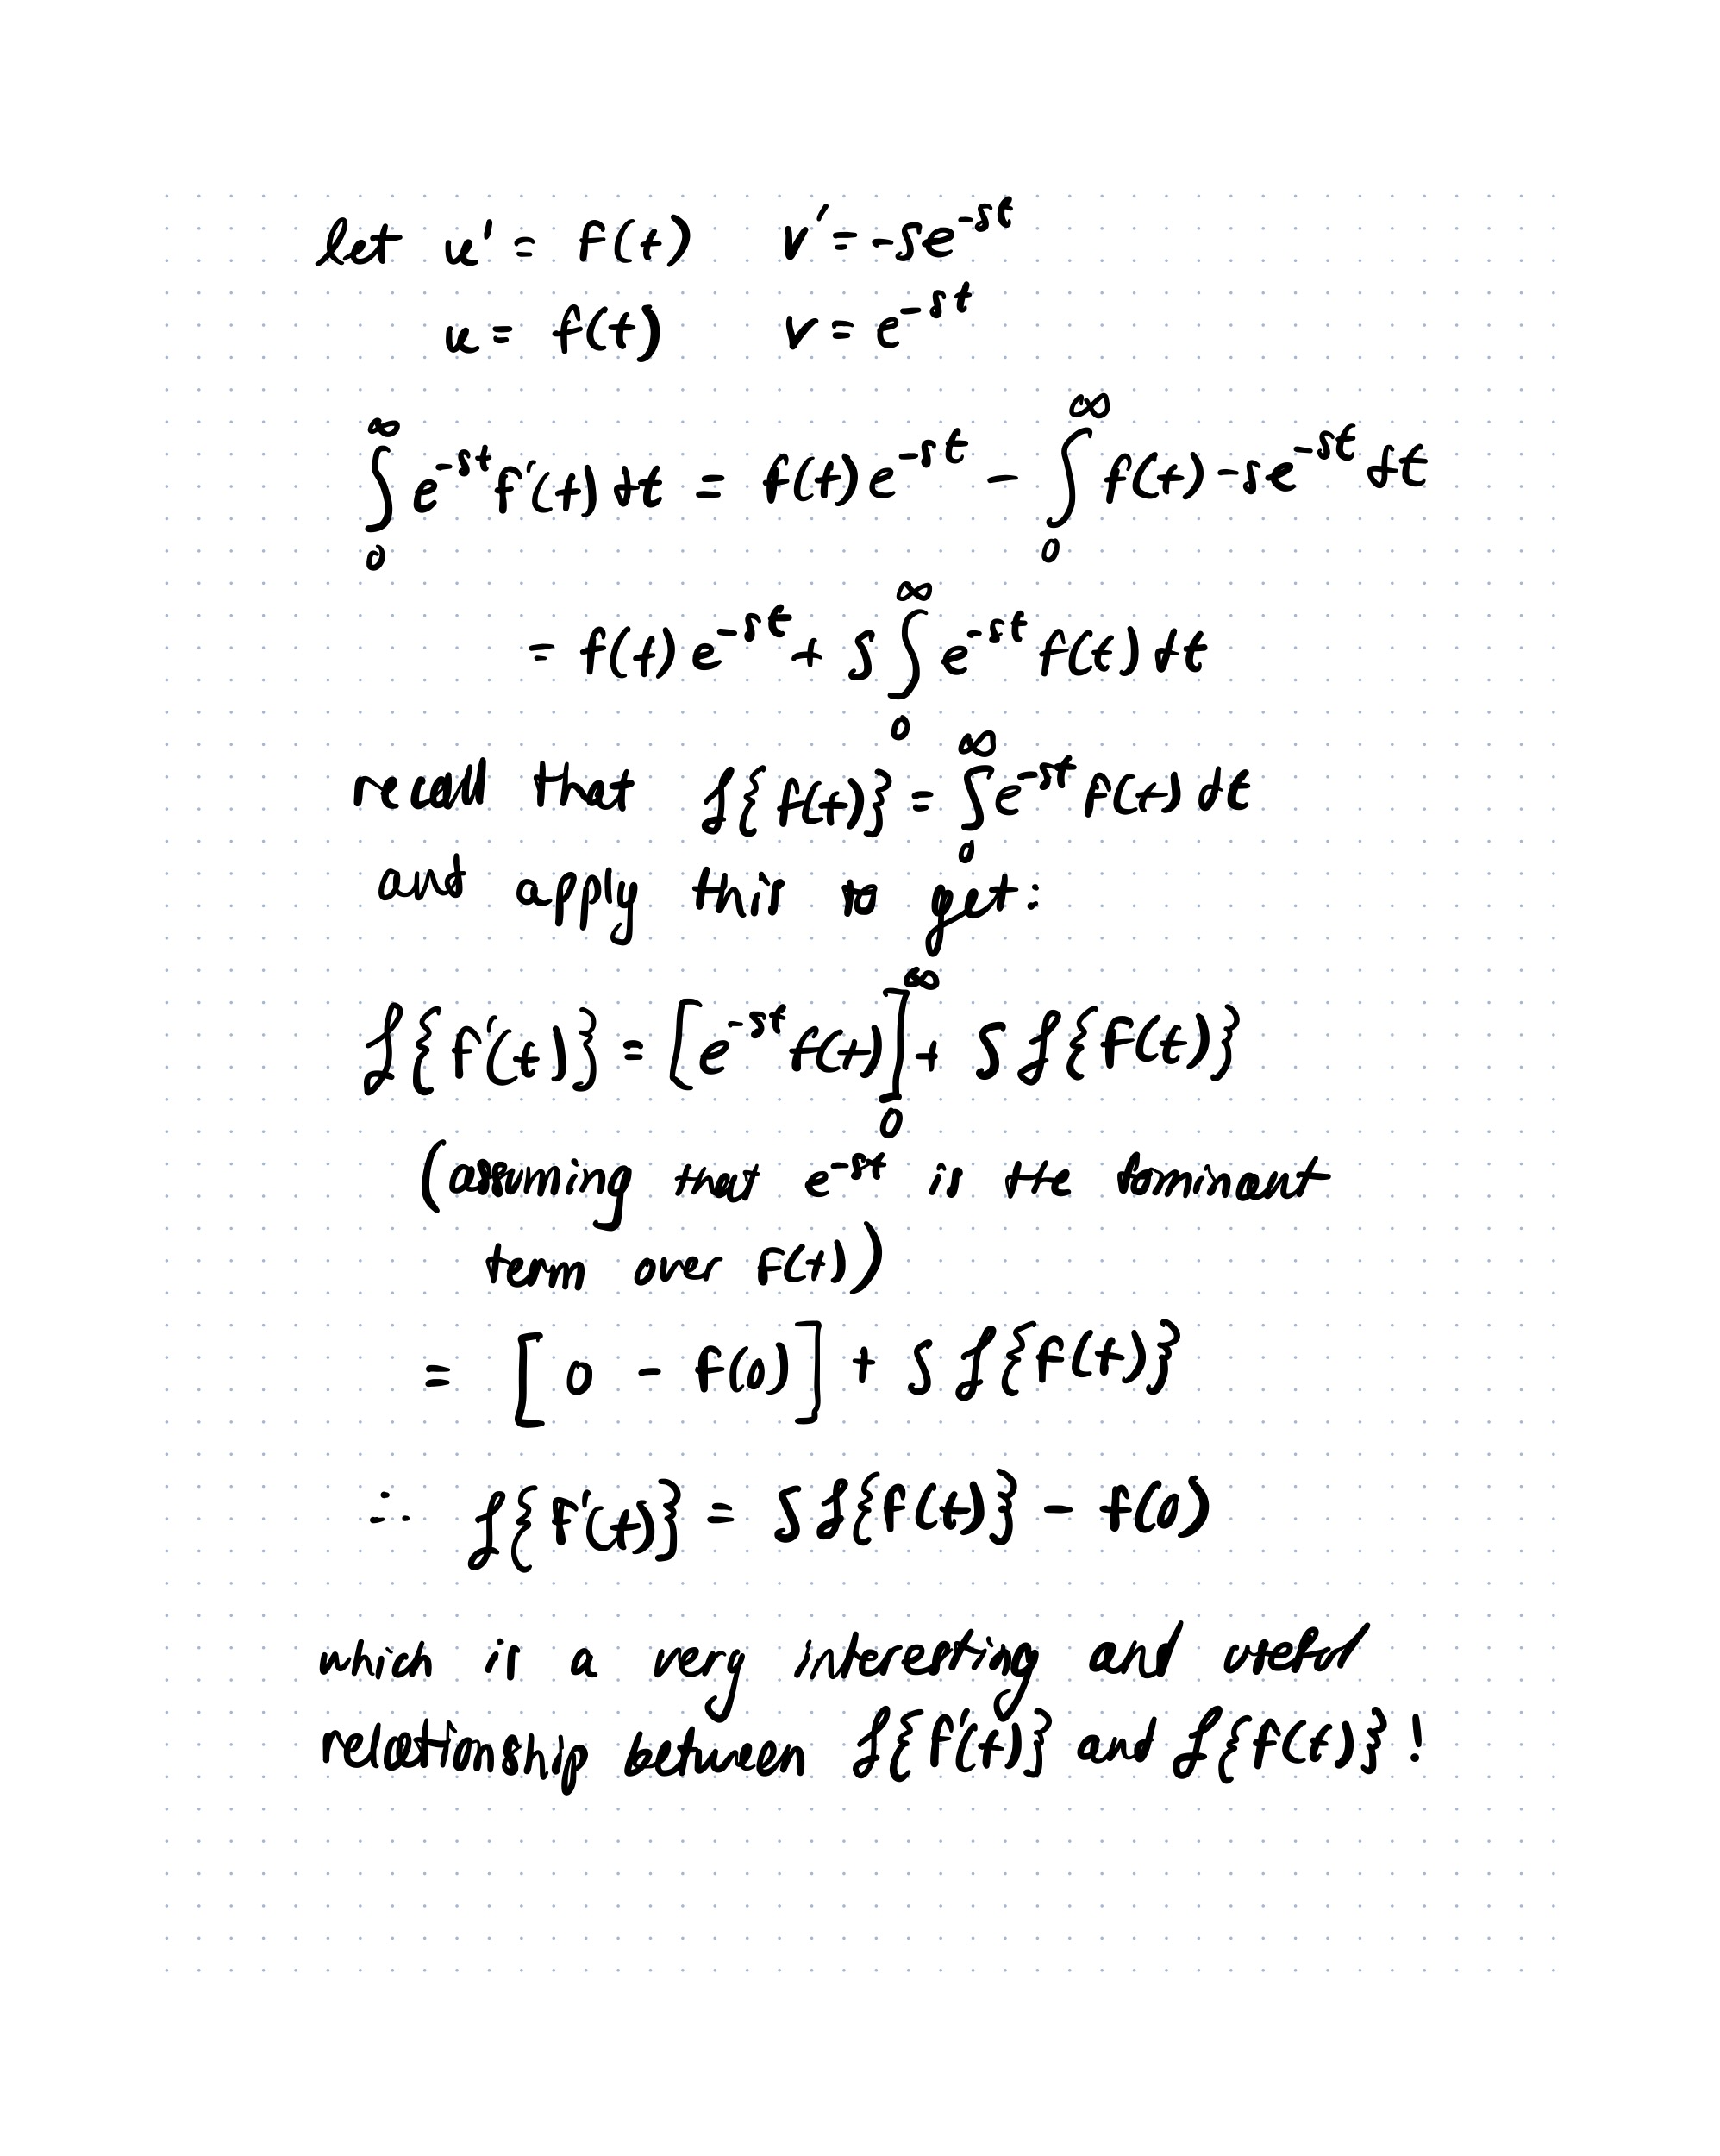 let u' = f(t) v' = -se^{-st}
u = f(t) v = e^{-st}
∫_0^∞ e^{-st} f'(t) dt = f(t) e^{-st} - ∫_0^∞ f(t) -se^{-st} dt
= f(t) e^{-st} + s ∫_0^∞ e^{-st} f(t) dt
recall that ℒ{f(t)} = ∫_0^∞ e^{-st} f(t) dt
and apply this to get:
ℒ{f'(t)} = [e^{-st} f(t)]_0^∞ + s ℒ{f(t)}
(assuming that e^{-st} is the dominant
term over f(t))
= [0 - f(0)] + s ℒ{f(t)}
∴ ℒ{f'(t)} = s ℒ{f(t)} - f(0)
which is a very interesting and useful
relationship between ℒ{f'(t)} and ℒ{f(t)}!